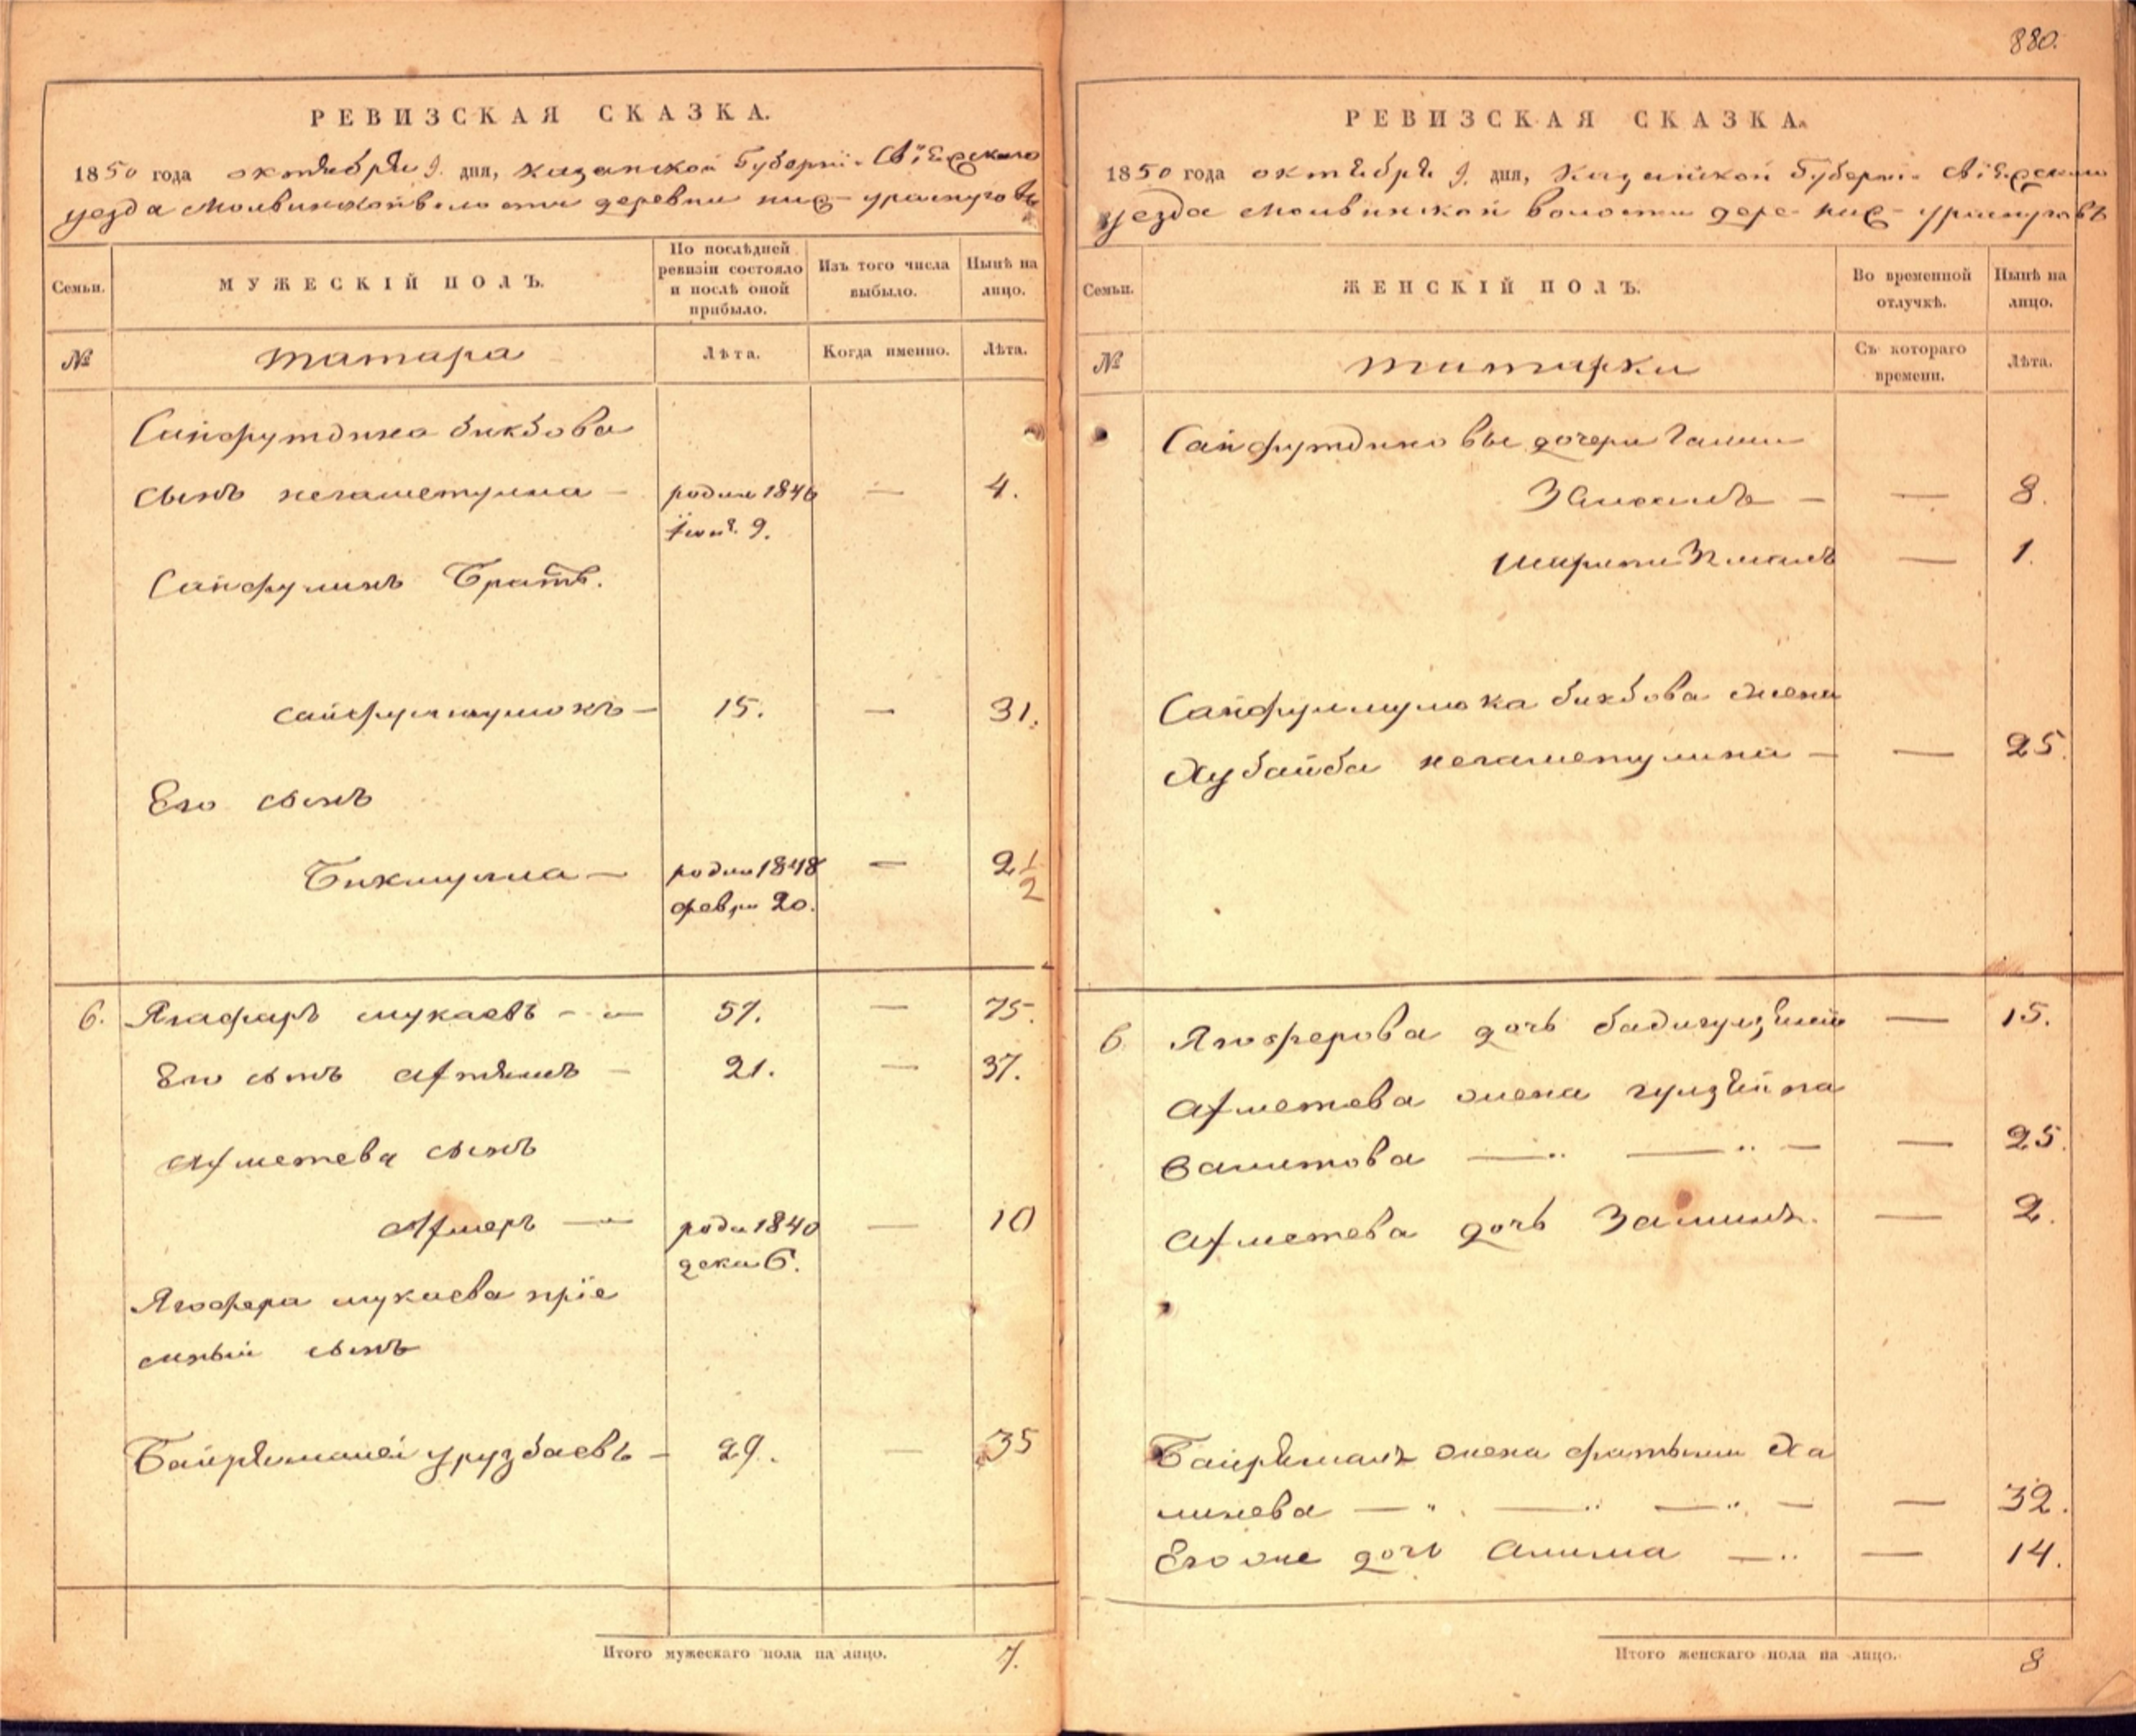 880.
РЕВИЗСКАЯ СКАЗКА.
1850 года октября 9. дня, Казанской Губерніи Свіяжскаго
уезда Молвинской волости деревни ниж- ураспуговъ
Семьи.
МУЖЕСКІЙ ПОЛЪ.
По послѣдней ревизіи состояло и послѣ оной прибыло.
Изъ того числа выбыло.
Нынѣ на лицо.
№
татара
Лѣта.
Когда именно.
Лѣта.
Сайфутдина бикбова
сынъ негаметулла — родил 1846 — 4.
9.
Сайфулинъ Братъ.
— 15. — 31.
Его сынъ
Бикмулла — родил 1848 — 2 1/2
февра 20.
6. Ягафаръ мукаевъ — 57. — 75.
Его сынъ — 21. — 37.
Ахметева сынъ
Ахмеръ — роди 1840 — 10
дека 6.
Ягофера мукаева пріе
мный сынъ
Байрямалей урузбаевъ — 29. — 35
Итого мужескаго пола на лицо. 7.
РЕВИЗСКАЯ СКАЗКА.
1850 года октября 9. дня, Казанской Губерніи Свіяжскаго
уезда Молвинской волости дере- ниж- ураспуговъ
Семьи.
ЖЕНСКІЙ ПОЛЪ.
Во временной отлучкѣ.
Нынѣ на лицо.
№
татарки
Съ котораго времени.
Лѣта.
Сайфутдиновы дочери
— — 8.
— 1.
бикбова жена
Хубайба негаметулина — — 25.
6. Ягоферова дочь — 15.
Ахметева жена гулзяйпа
Валитова — " — " — — 25.
Ахметева дочь — 2.
жена Ха
лилева — " — " — " — — 32.
Его же дочь Алима — " — 14.
Итого женскаго пола на лицо. 8